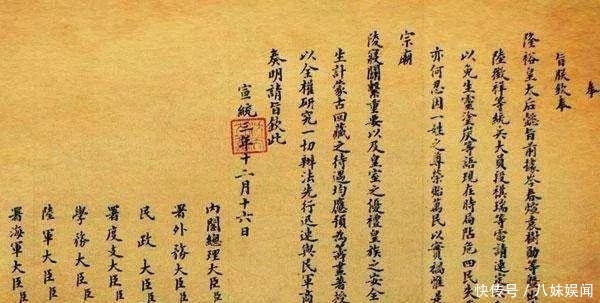 奉
旨朕欽奉
隆裕皇太后懿旨前據岑春煊袁樹勛等暨
陸徵祥等統兵大員段祺瑞等電請速定
以免生靈塗炭等語現在時局阽危四民失
亦何忍因一姓之尊榮貽萬民以實禍惟是
宗廟
陵寢關繫重要以及皇室之優禮皇族之安全
生計蒙古回藏之待遇均應預為籌畫著授
以全權研究一切辦法先行迅速與民軍商
奏明請旨欽此
宣統三年十二月十六日
內閣總理大臣臣
署外務大臣臣
民政大臣臣
署度支大臣臣
學務大臣臣
陸軍大臣臣
署海軍大臣
快传号 / 八妹娱闻